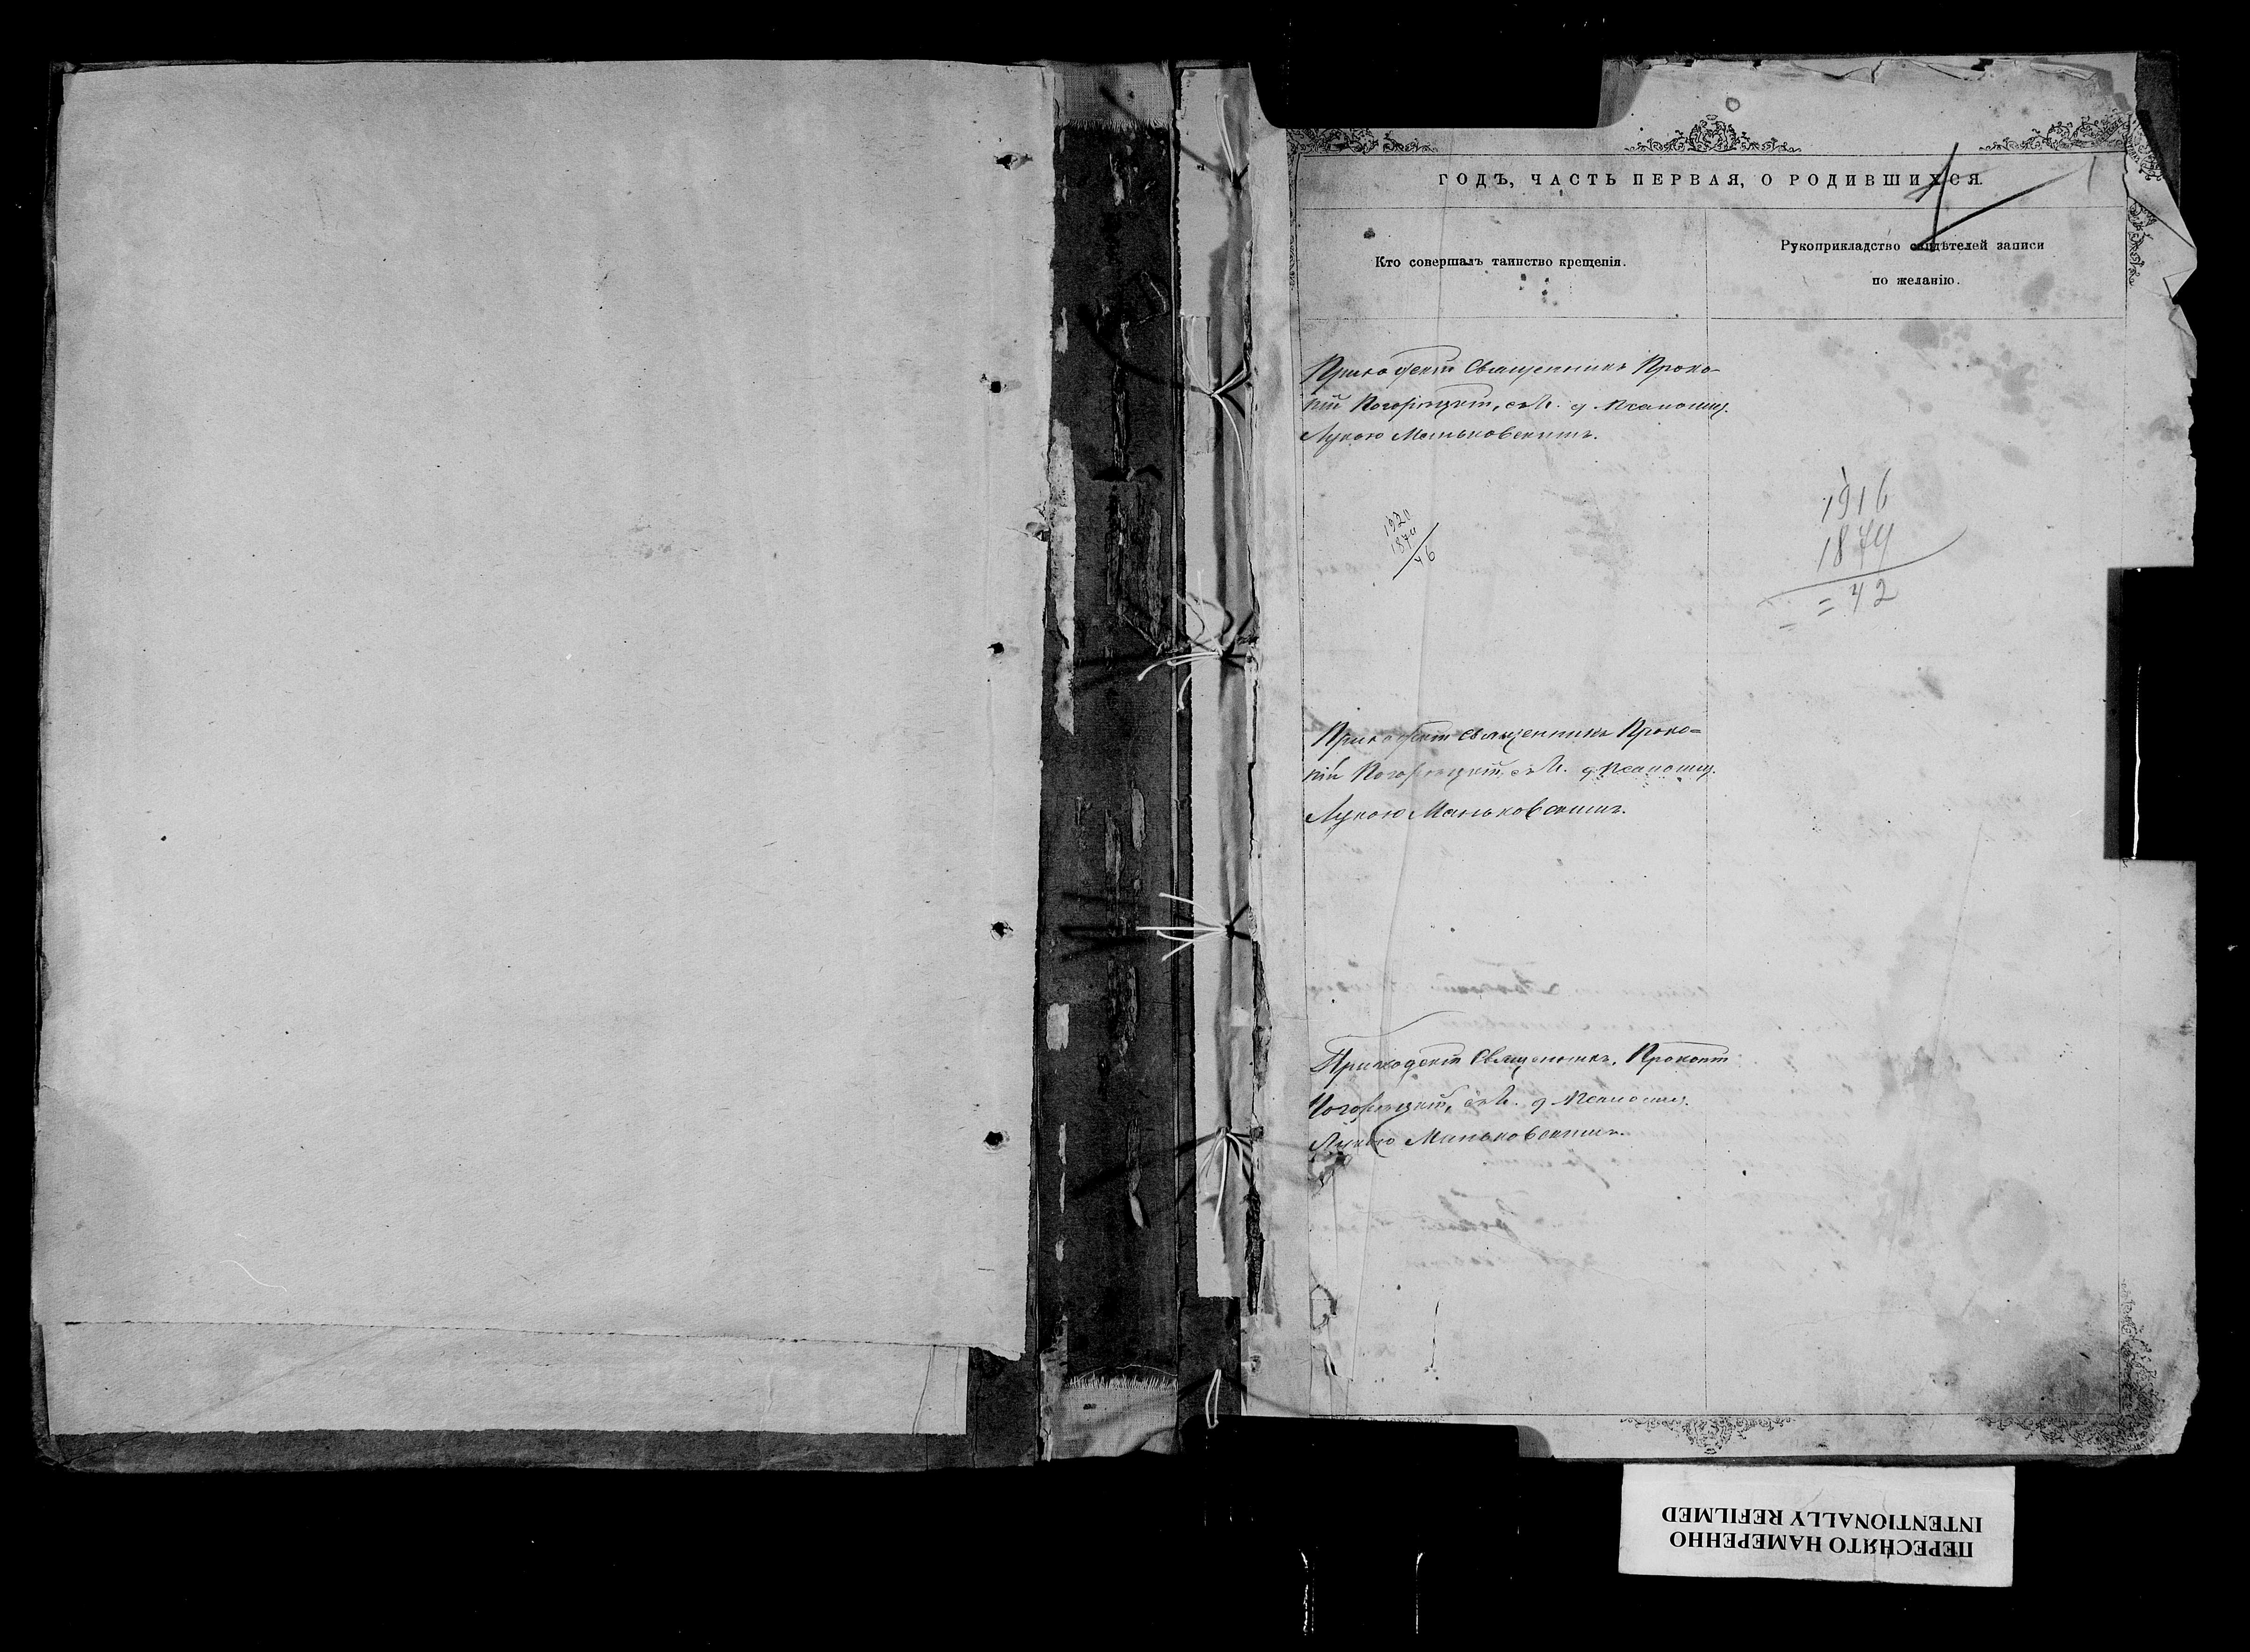 ГОДЪ, ЧАСТЬ ПЕРВАЯ, О РОДИВШИХСЯ.
Кто совершалъ таинство крещенія.
Рукоприкладство свидѣтелей записи
по желанію.
Приходскій Священникъ Проко-
пій съ И. д. Псаломщ.
Лукою Маньковскимъ.
1920
1874
46
1916
1874
= 42
Приходскій Священникъ Проко=
пій съ И. д. Псаломщ.
Лукою Маньковскимъ.
Приходскій Священникъ, Прокопій
съ И. д. Псаломщ.
Лукою Маньковскимъ.
ПЕРЕСНЯТО НАМЕРЕННО
INTENTIONALLY REFILMED